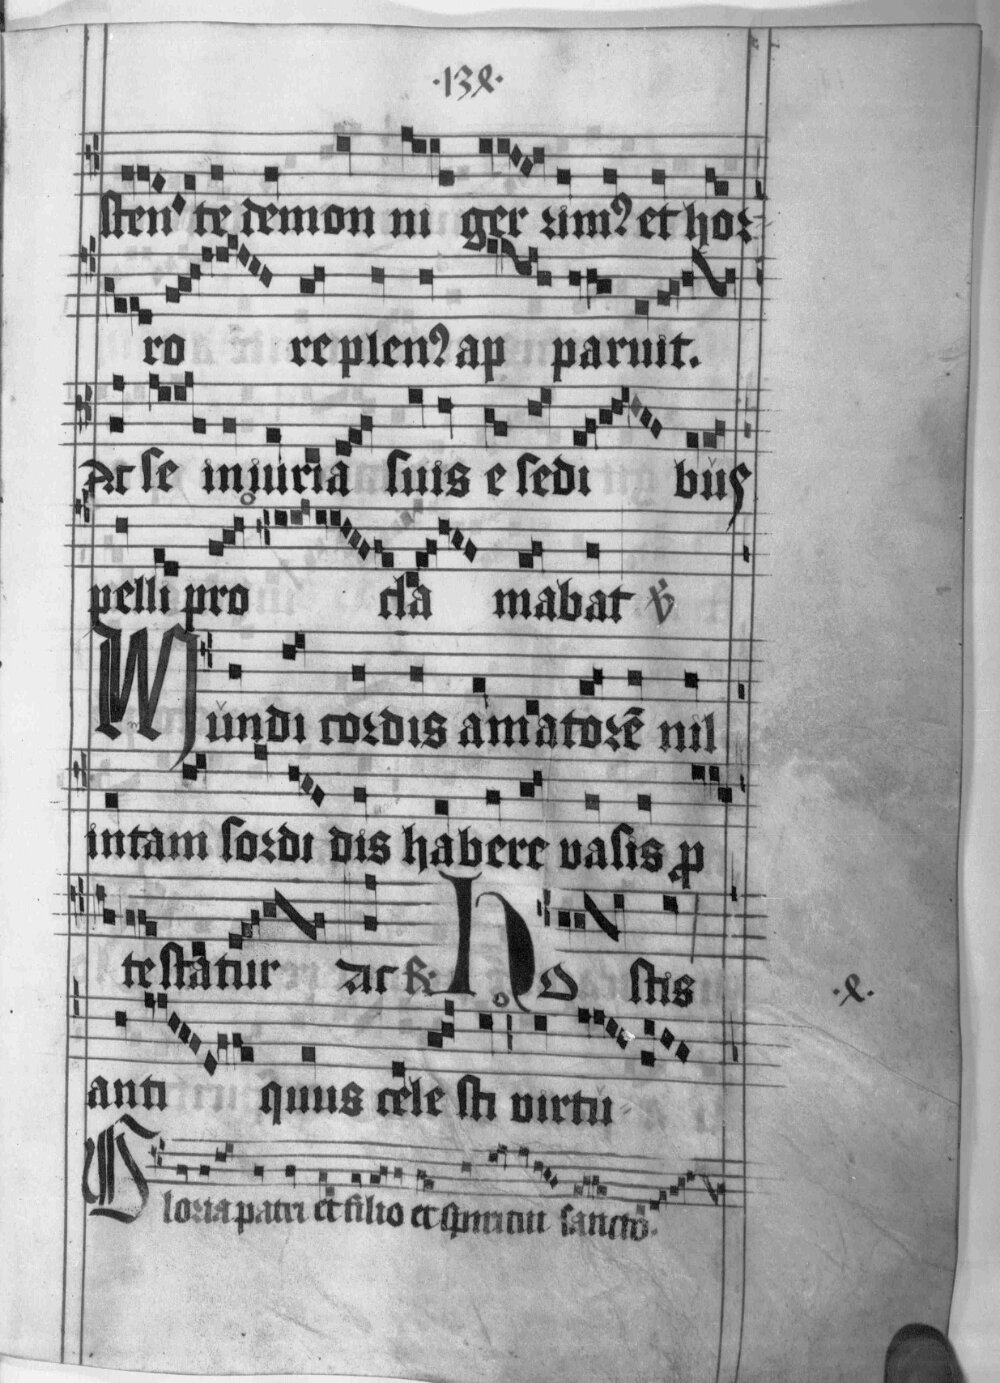 ·138·
sten⁹ te demon ni ger rim⁹ et hor
ro replen⁹ ap paruit.
Ac se iniuria suis e sedi bus
pelli pro cla mabat ℣
Mundi cordis amatorē nil
intam sordi dis habere vasis ꝓ
testatur Ac ℟. Ho stis
·8·
anti quus cele sti virtu
Gloria patri et filio et spiritui sancto.